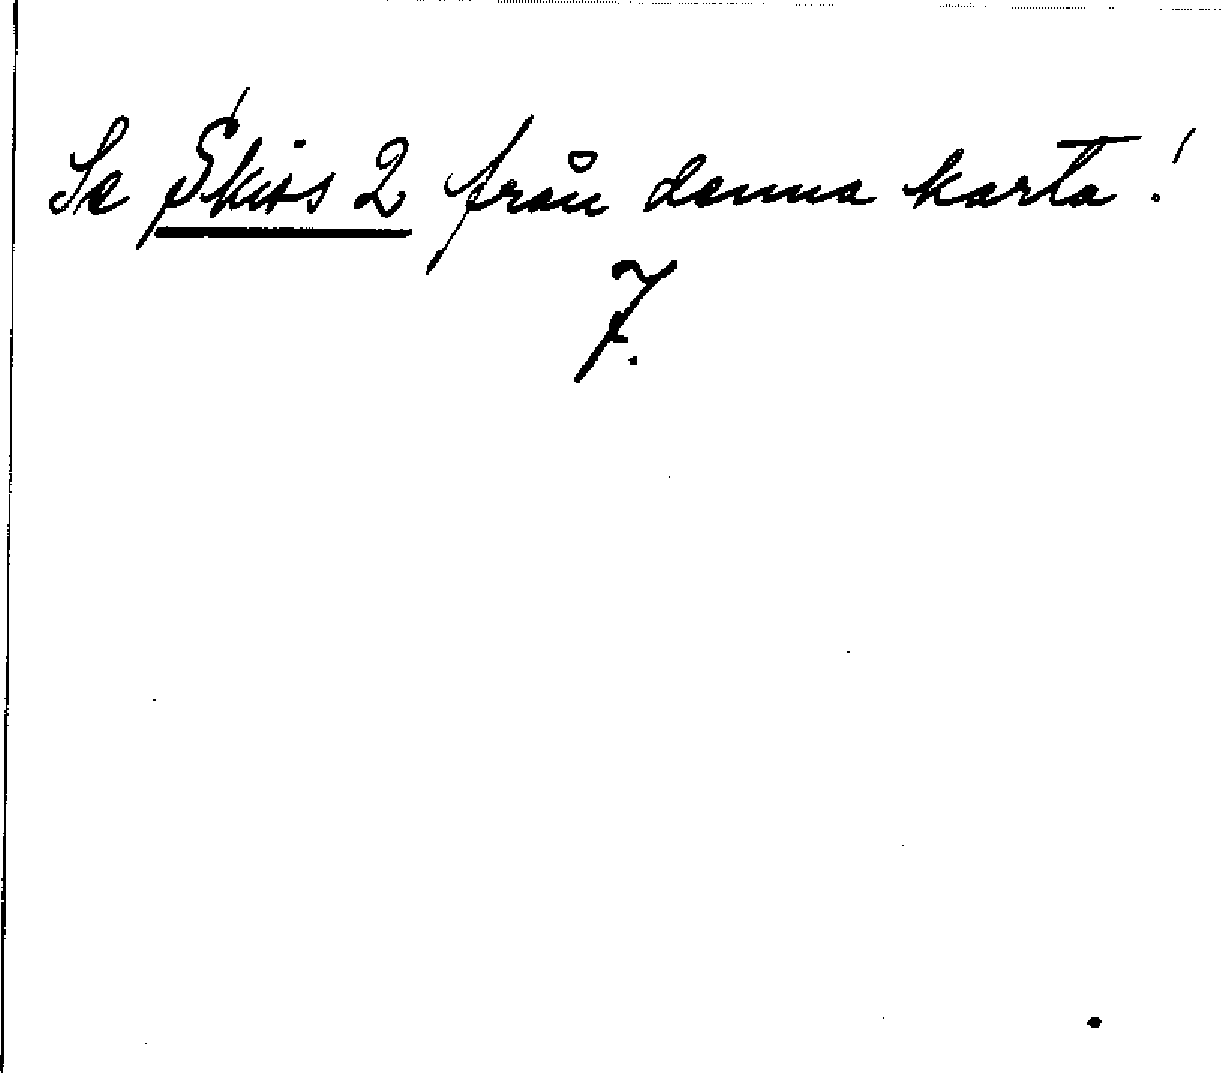 Se Skiss 2 från denna karta!
7.